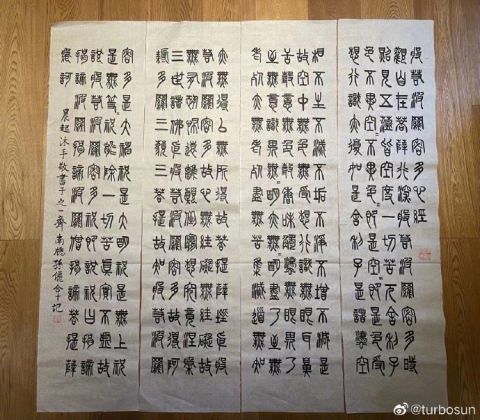 般若波羅蜜多心經
觀自在菩薩行深般若波羅蜜多時
照見五蘊皆空度一切苦厄舍利子
色不異空空不異色色即是空空即是色受
想行識亦復如是舍利子是諸法空
相不生不滅不垢不淨不增不減是
故空中無色無受想行識無眼耳鼻
舌身意無色聲香味觸法無眼界乃
至無意識界無無明亦無無明盡乃至無
老死亦無老死盡無苦集滅道無智
亦無得以無所得故菩提薩埵依般
若波羅蜜多故心無罣礙無罣礙故
無有恐怖遠離顛倒夢想究竟涅槃
三世諸佛依般若波羅蜜多故得阿
耨多羅三藐三菩提故知般若波羅
蜜多是大神咒是大明咒是無上咒
是無等等咒能除一切苦真實不虛故
說般若波羅蜜多咒即說咒曰揭諦
揭諦波羅揭諦波羅僧揭諦菩提薩
婆訶 晨起沐手敬書于之一齋
@turbosun